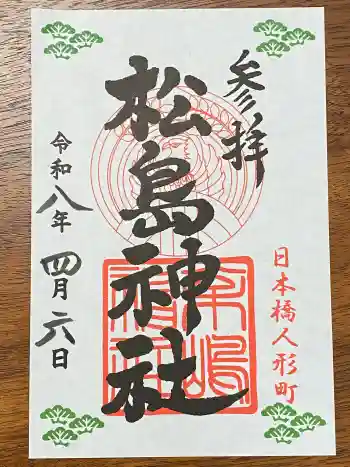 参拝
日本橋人形町
松島神社
令和八年
四月六日